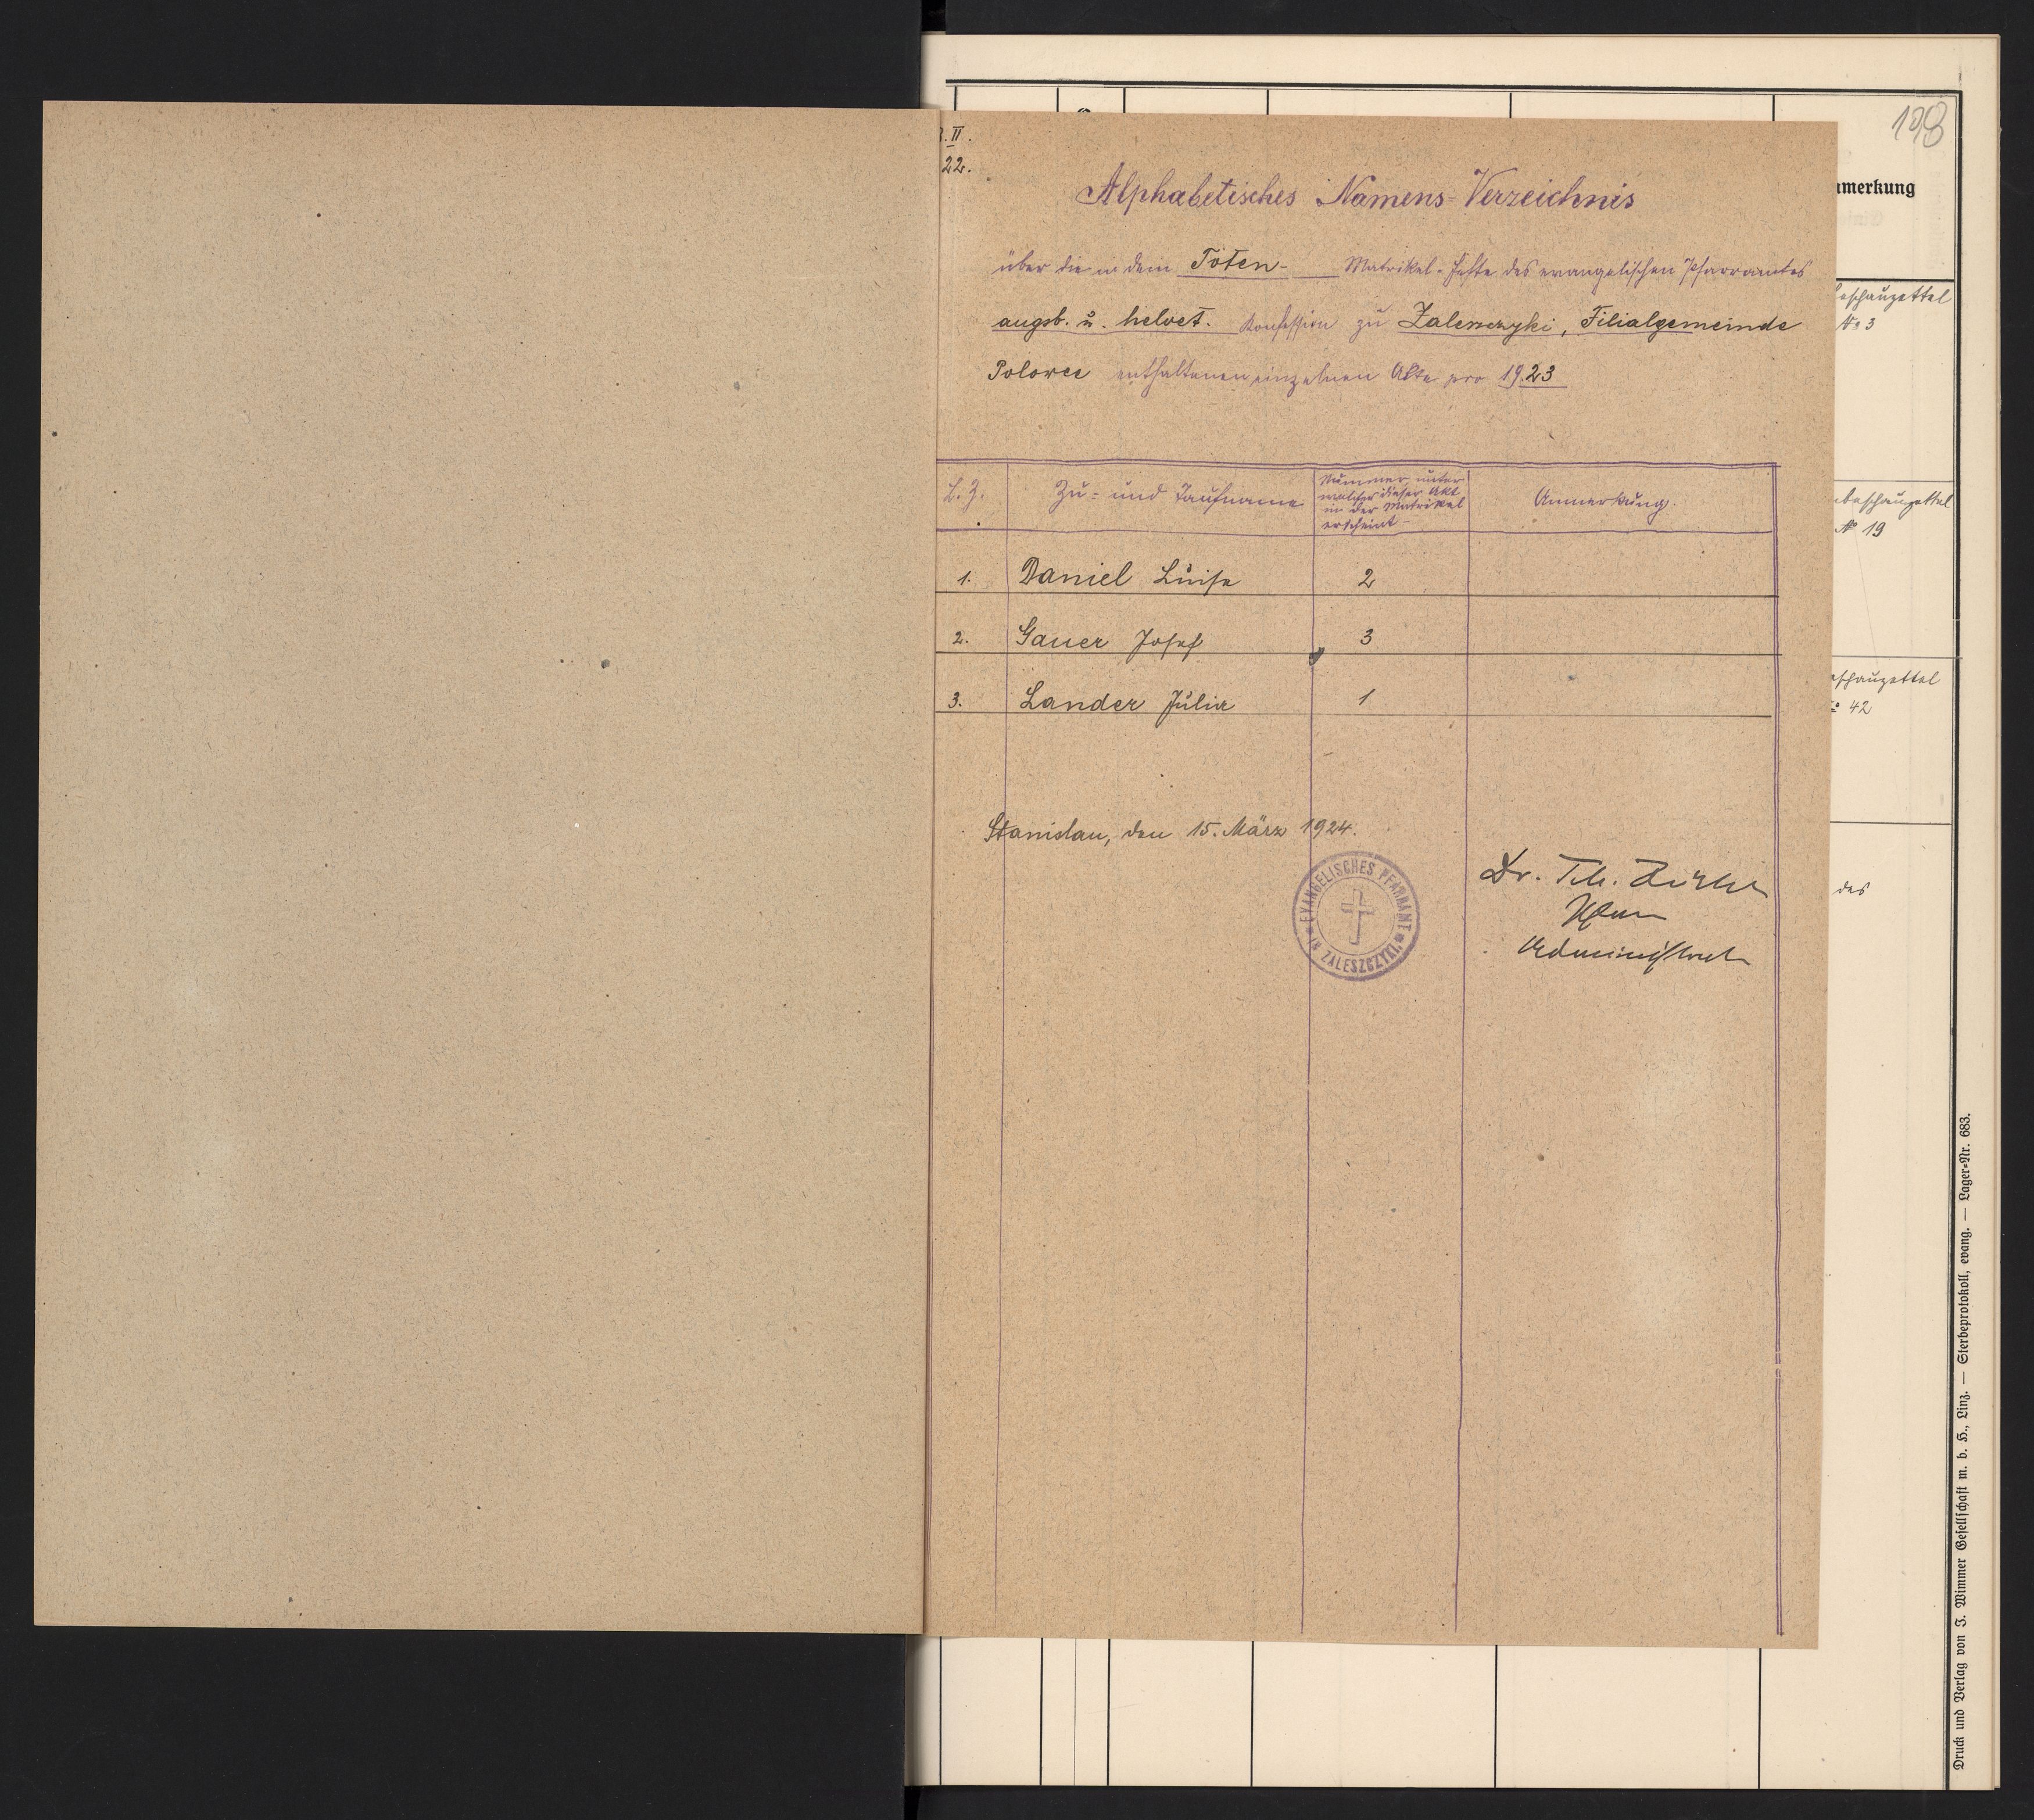 198
.II.
22.
Alphabetisches Namens-Verzeichnis
über die in dem Toten- Matrikel-Hefte des evangelischen Pfarramtes
augsb. u. helvet. Konfession zu Zaleszczyki, Filialgemeinde
Polowce enthaltenen einzelnen Akte pro 1923
L.Z.
Zu- und Taufname
Nummer, unter
welcher dieser Akt
in der Matrikel
erscheint
Anmerkung.
1. Daniel Luise 2
2. Gauer Josef 3
3. Lander Julia 1
Stanislau, den 15. März 1924.
EVANGELISCHES PFARRAMT
IN ZALESZCZYKI.
Dr. Th. Zöckler
Pfarrer
Administrator
merkung
eschauzettel
No 3
beschauzettel
No 19
eschauzettel
42
des
Druck und Verlag von J. Wimmer Gesellschaft m. b. H., Linz. — Sterbeprotokoll, evang. — Lager-Nr. 683.